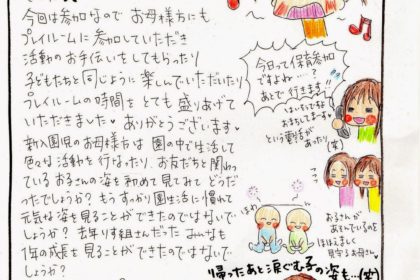 今回は参加なので お母様方にも
プレイルームに参加していただき
活動のお手伝いをしてもらったり
子どもたちと同じように楽しんでいただいたり
プレイルームの時間をとても盛りあげて
いただきました♥ ありがとうございます♥
新入園児のお母様方は 園の中で生活して
色々な活動を行なったり、お友だちと関わって
いるお子さんの姿を初めて見てみて どうだっ
たでしょうか? もうすっかり園生活に慣れて
元気な姿を見ることができたのではないで
しょうか? 去年りす組さんだった みんなも
1年の成長を見ることができたのではないで
しょうか?
今日って保育参加
ですよね…?
あとで行きます!!
はーい
おまちしてまーす♪
という電話が
あったり(笑)
ほわ
お子さんが
あそんでいるのを
ほほえましく
見守るお母さん♥
帰ったあと涙ぐむ子の姿も…(笑)